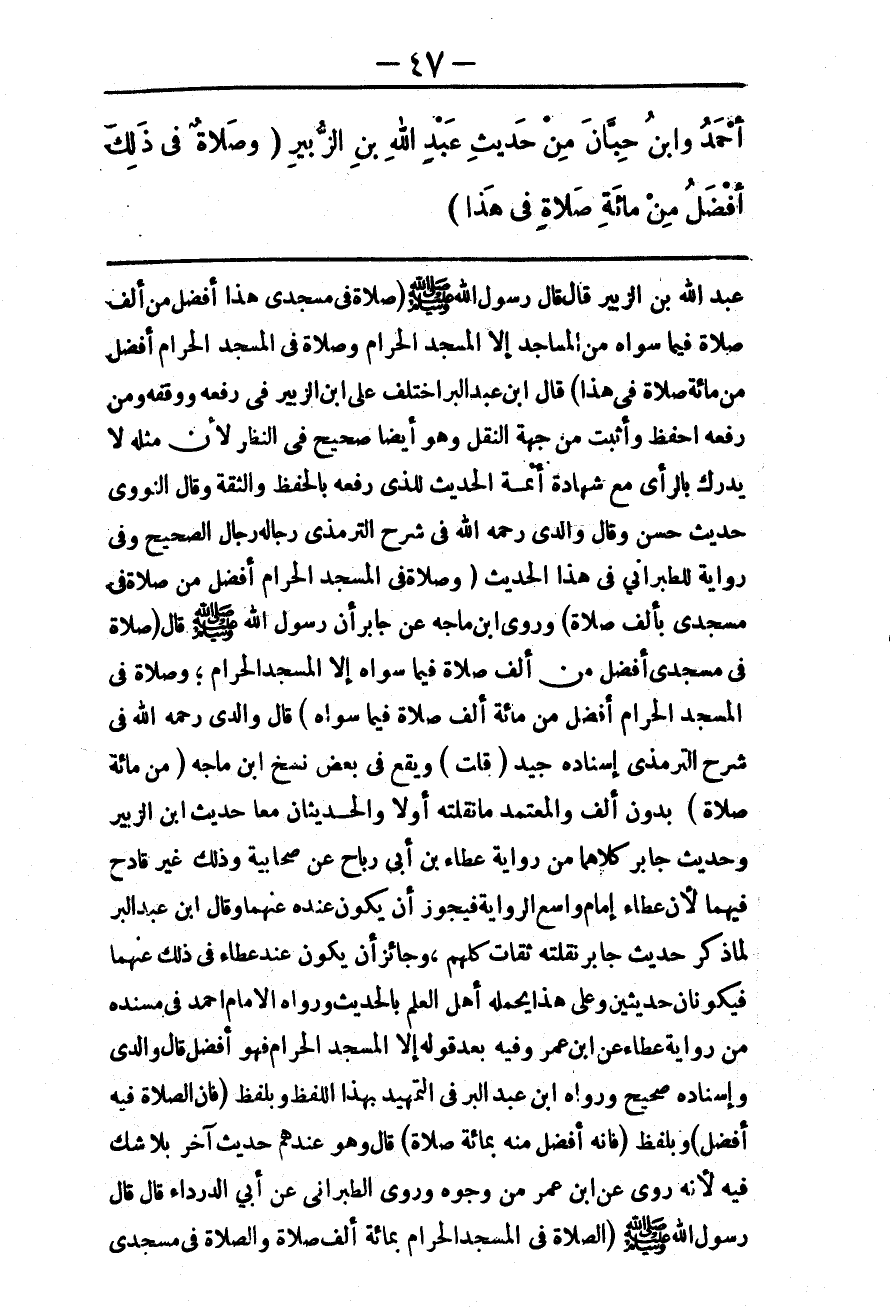 — ٤٧ —
أَحْمَدُ وابنُ حِبَّانَ مِنْ حَدِيثِ عَبْدِ اللهِ بنِ الزُّبيرِ ( وصَلاةٌ فى ذَلِكَ
أَفْضَلُ مِنْ مائَةِ صَلاةٍ فى هَذا )
عبد الله بن الزبير قال قال رسول الله ﷺ (صلاة فى مسجدى هذا أفضل من ألف
صلاة فيما سواه من المساجد إلا المسجد الحرام وصلاة فى المسجد الحرام أفضل
من مائة صلاة فى هذا) قال ابن عبد البر اختلف على ابن الزبير فى رفعه ووقفه ومن
رفعه احفظ وأثبت من جهة النقل وهو أيضا صحيح فى النظار لأن مثله لا
يدرك بالرأى مع شهادة أئمة الحديث للذى رفعه بالحفظ والثقة وقال النووى
حديث حسن وقال والدى رحمه الله فى شرح الترمذى رجاله رجال الصحيح وفى
رواية للطبرانى فى هذا الحديث ( وصلاة فى المسجد الحرام أفضل من صلاة فى
مسجدى بألف صلاة) وروى ابن ماجه عن جابر أن رسول الله ﷺ قال (صلاة
فى مسجدى أفضل من ألف صلاة فيما سواه إلا المسجد الحرام ؛ وصلاة فى
المسجد الحرام أفضل من مائة ألف صلاة فيما سواه ) قال والدى رحمه الله فى
شرح الترمذى إسناده جيد ( قلت ) ويقع فى بعض نسخ ابن ماجه ( من مائة
صلاة ) بدون ألف والمعتمد مانقلته أولا والحديثان معا حديث ابن الزبير
وحديث جابر كلاهما من رواية عطاء بن أبي رباح عن صحابية وذلك غير قادح
فيهما لأن عطاء إمام واسع الرواية فيجوز أن يكون عنده عنهما وقال ابن عبد البر
لماذكر حديث جابر نقلته ثقات كلهم ، وجائز أن يكون عند عطاء فى ذلك عنهما
فيكونان حديثين وعلى هذا يحمله أهل العلم بالحديث ورواه الامام احمد فى مسنده
من رواية عطاء عن ابن عمر وفيه بعد قوله إلا المسجد الحرام فهو أفضل قال والدى
وإسناده صحيح ورواه ابن عبد البر فى التمهيد بهذا اللفظ وبلفظ (فان الصلاة فيه
أفضل) وبلفظ (فانه أفضل منه بمائة صلاة) قال وهو عندهم حديث آخر بلا شك
فيه لأنه روى عن ابن عمر من وجوه وروى الطبرانى عن أبي الدرداء قال قال
رسول الله ﷺ (الصلاة فى المسجد الحرام بمائة ألف صلاة والصلاة فى مسجدى